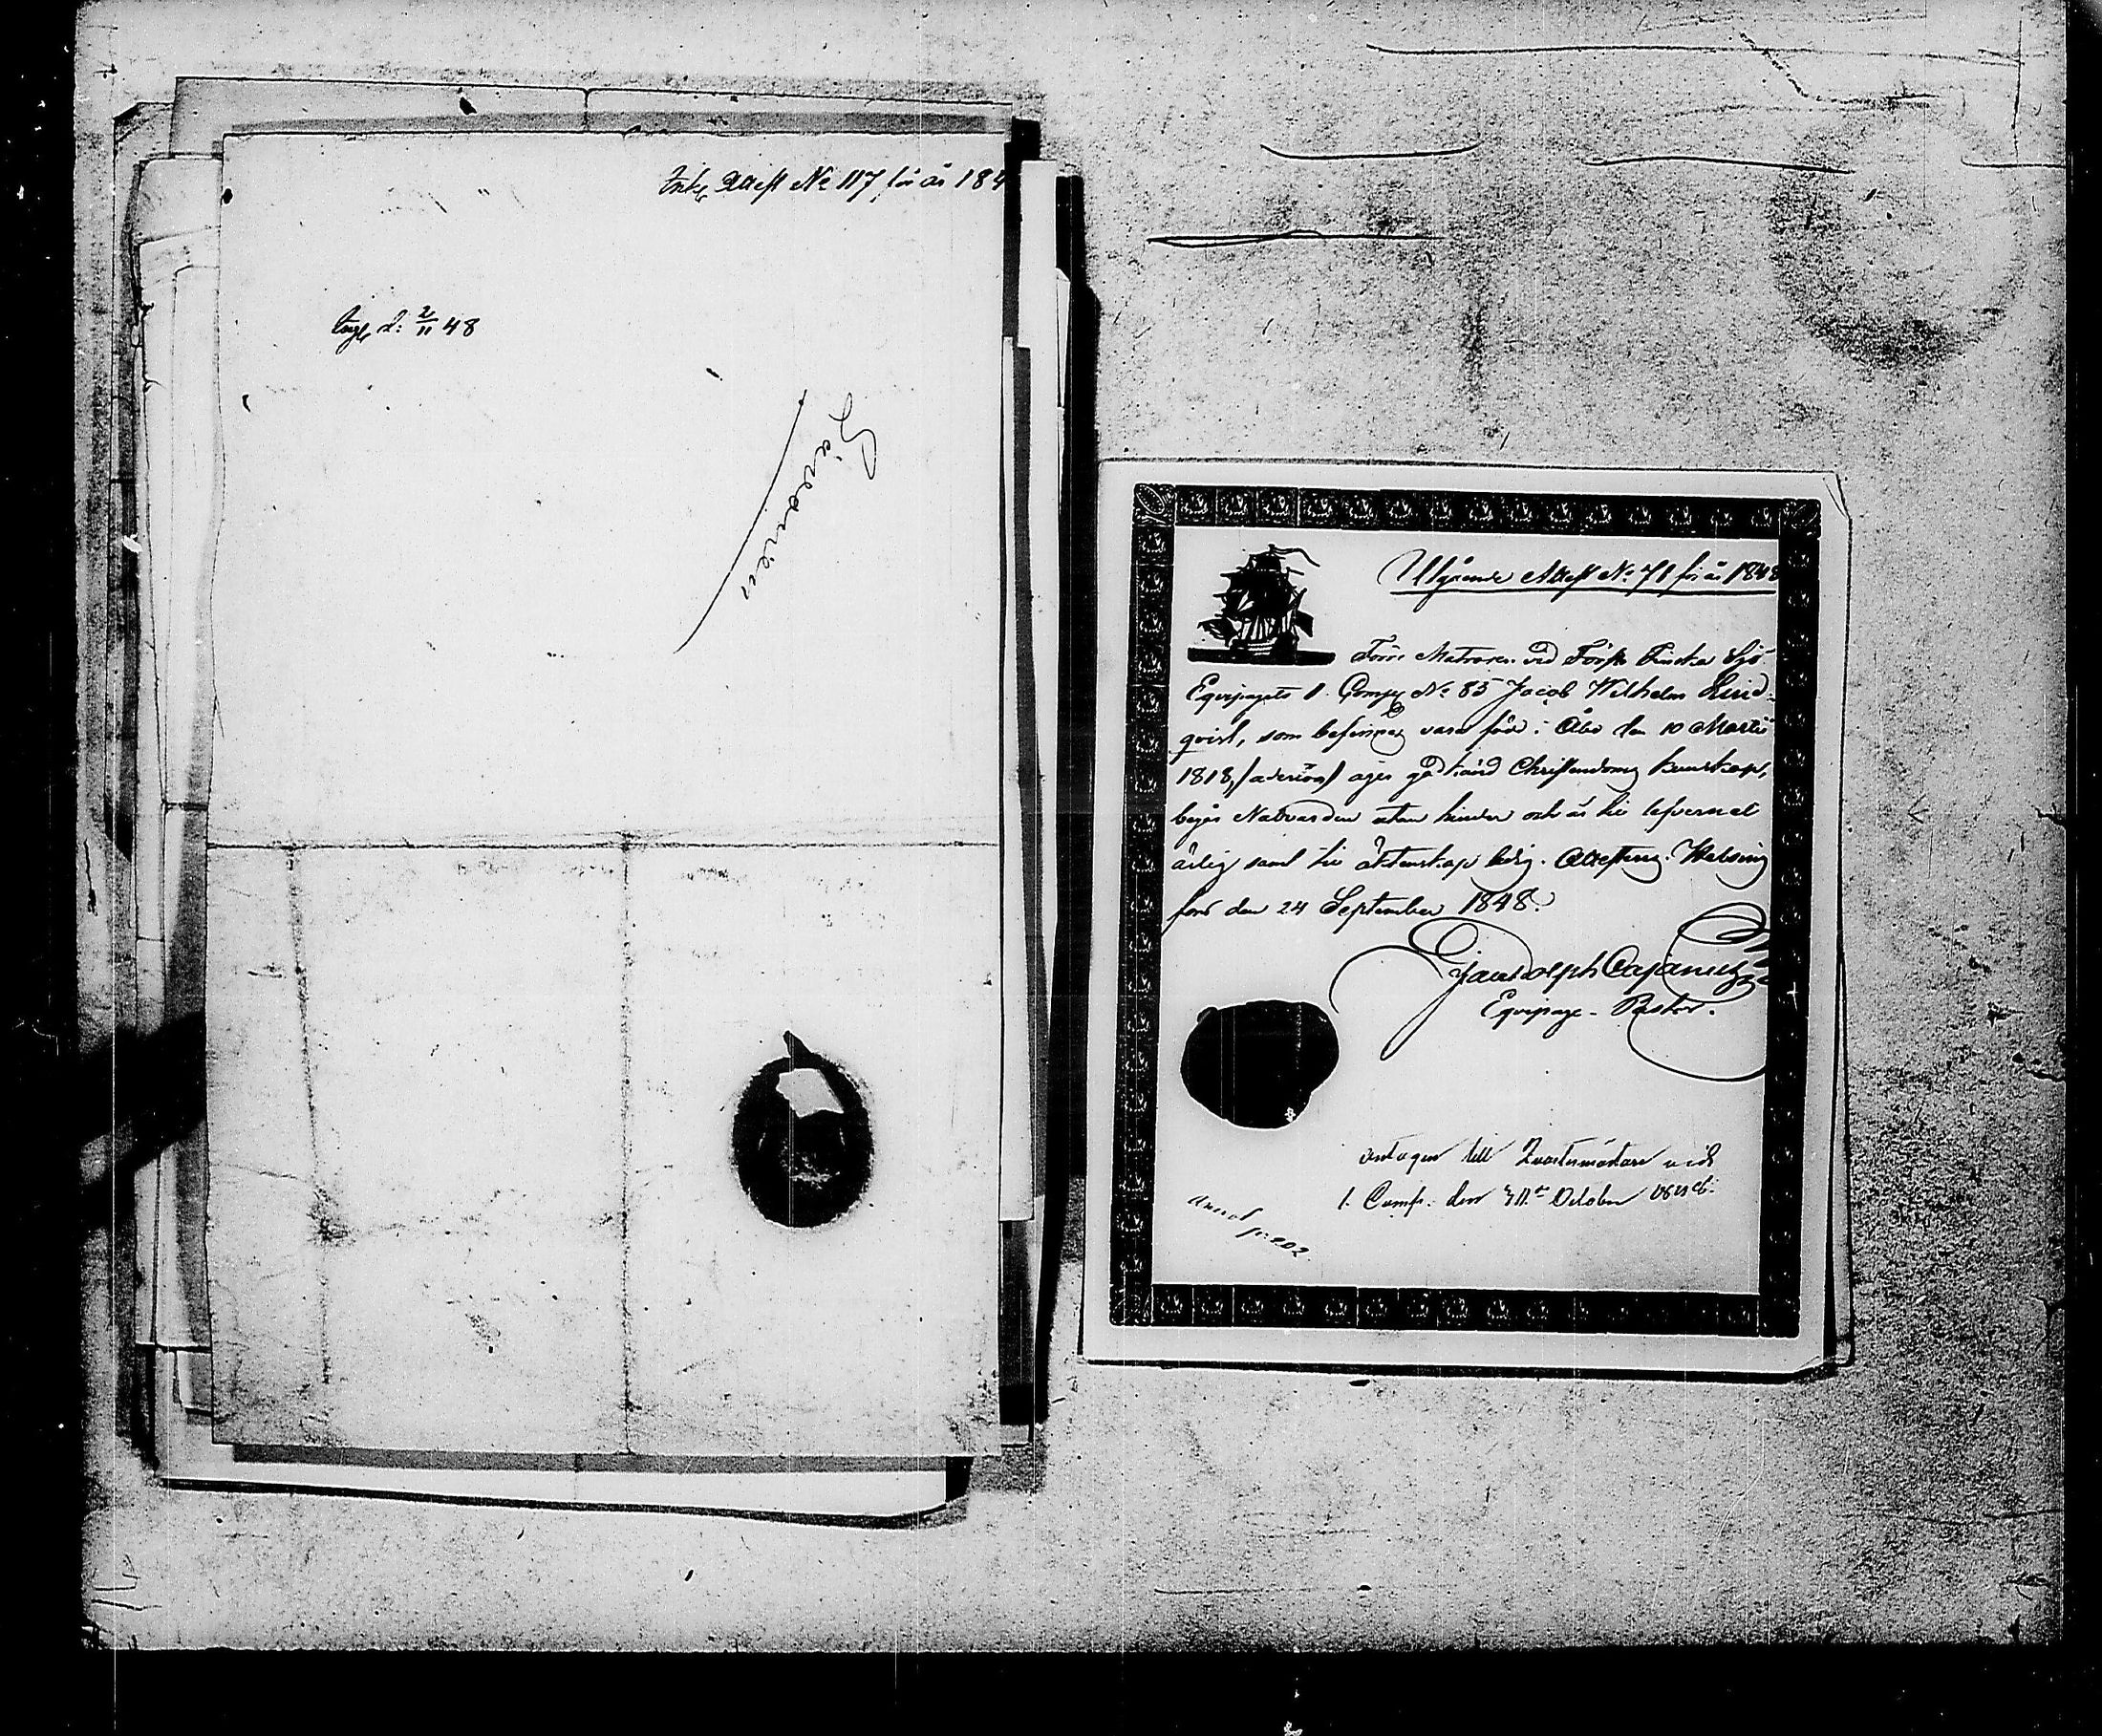 Ink. Attest No 117 för år 184
Ing. d: 2/11 48
Utgående Attest No 71 för år 1848
Förre Matrosen vid Första Finska Sjö-
Equipagets 1. Comp. No 85 Jacob Wilhelm Lind-
qvist, som befinnes vara född i Åbo den 10 Martii
1818, äger godkänd Christendoms kunskap,
begår Nattvarden utan hinder och är till lefvernet
ärlig samt till äktenskap ledig. Attesteras. Helsing
fors den 24 September 1848.
Cajanus
Equipage-Pastor.
antagen till Qvartermästare vid
1. Comp. den October
p: 202